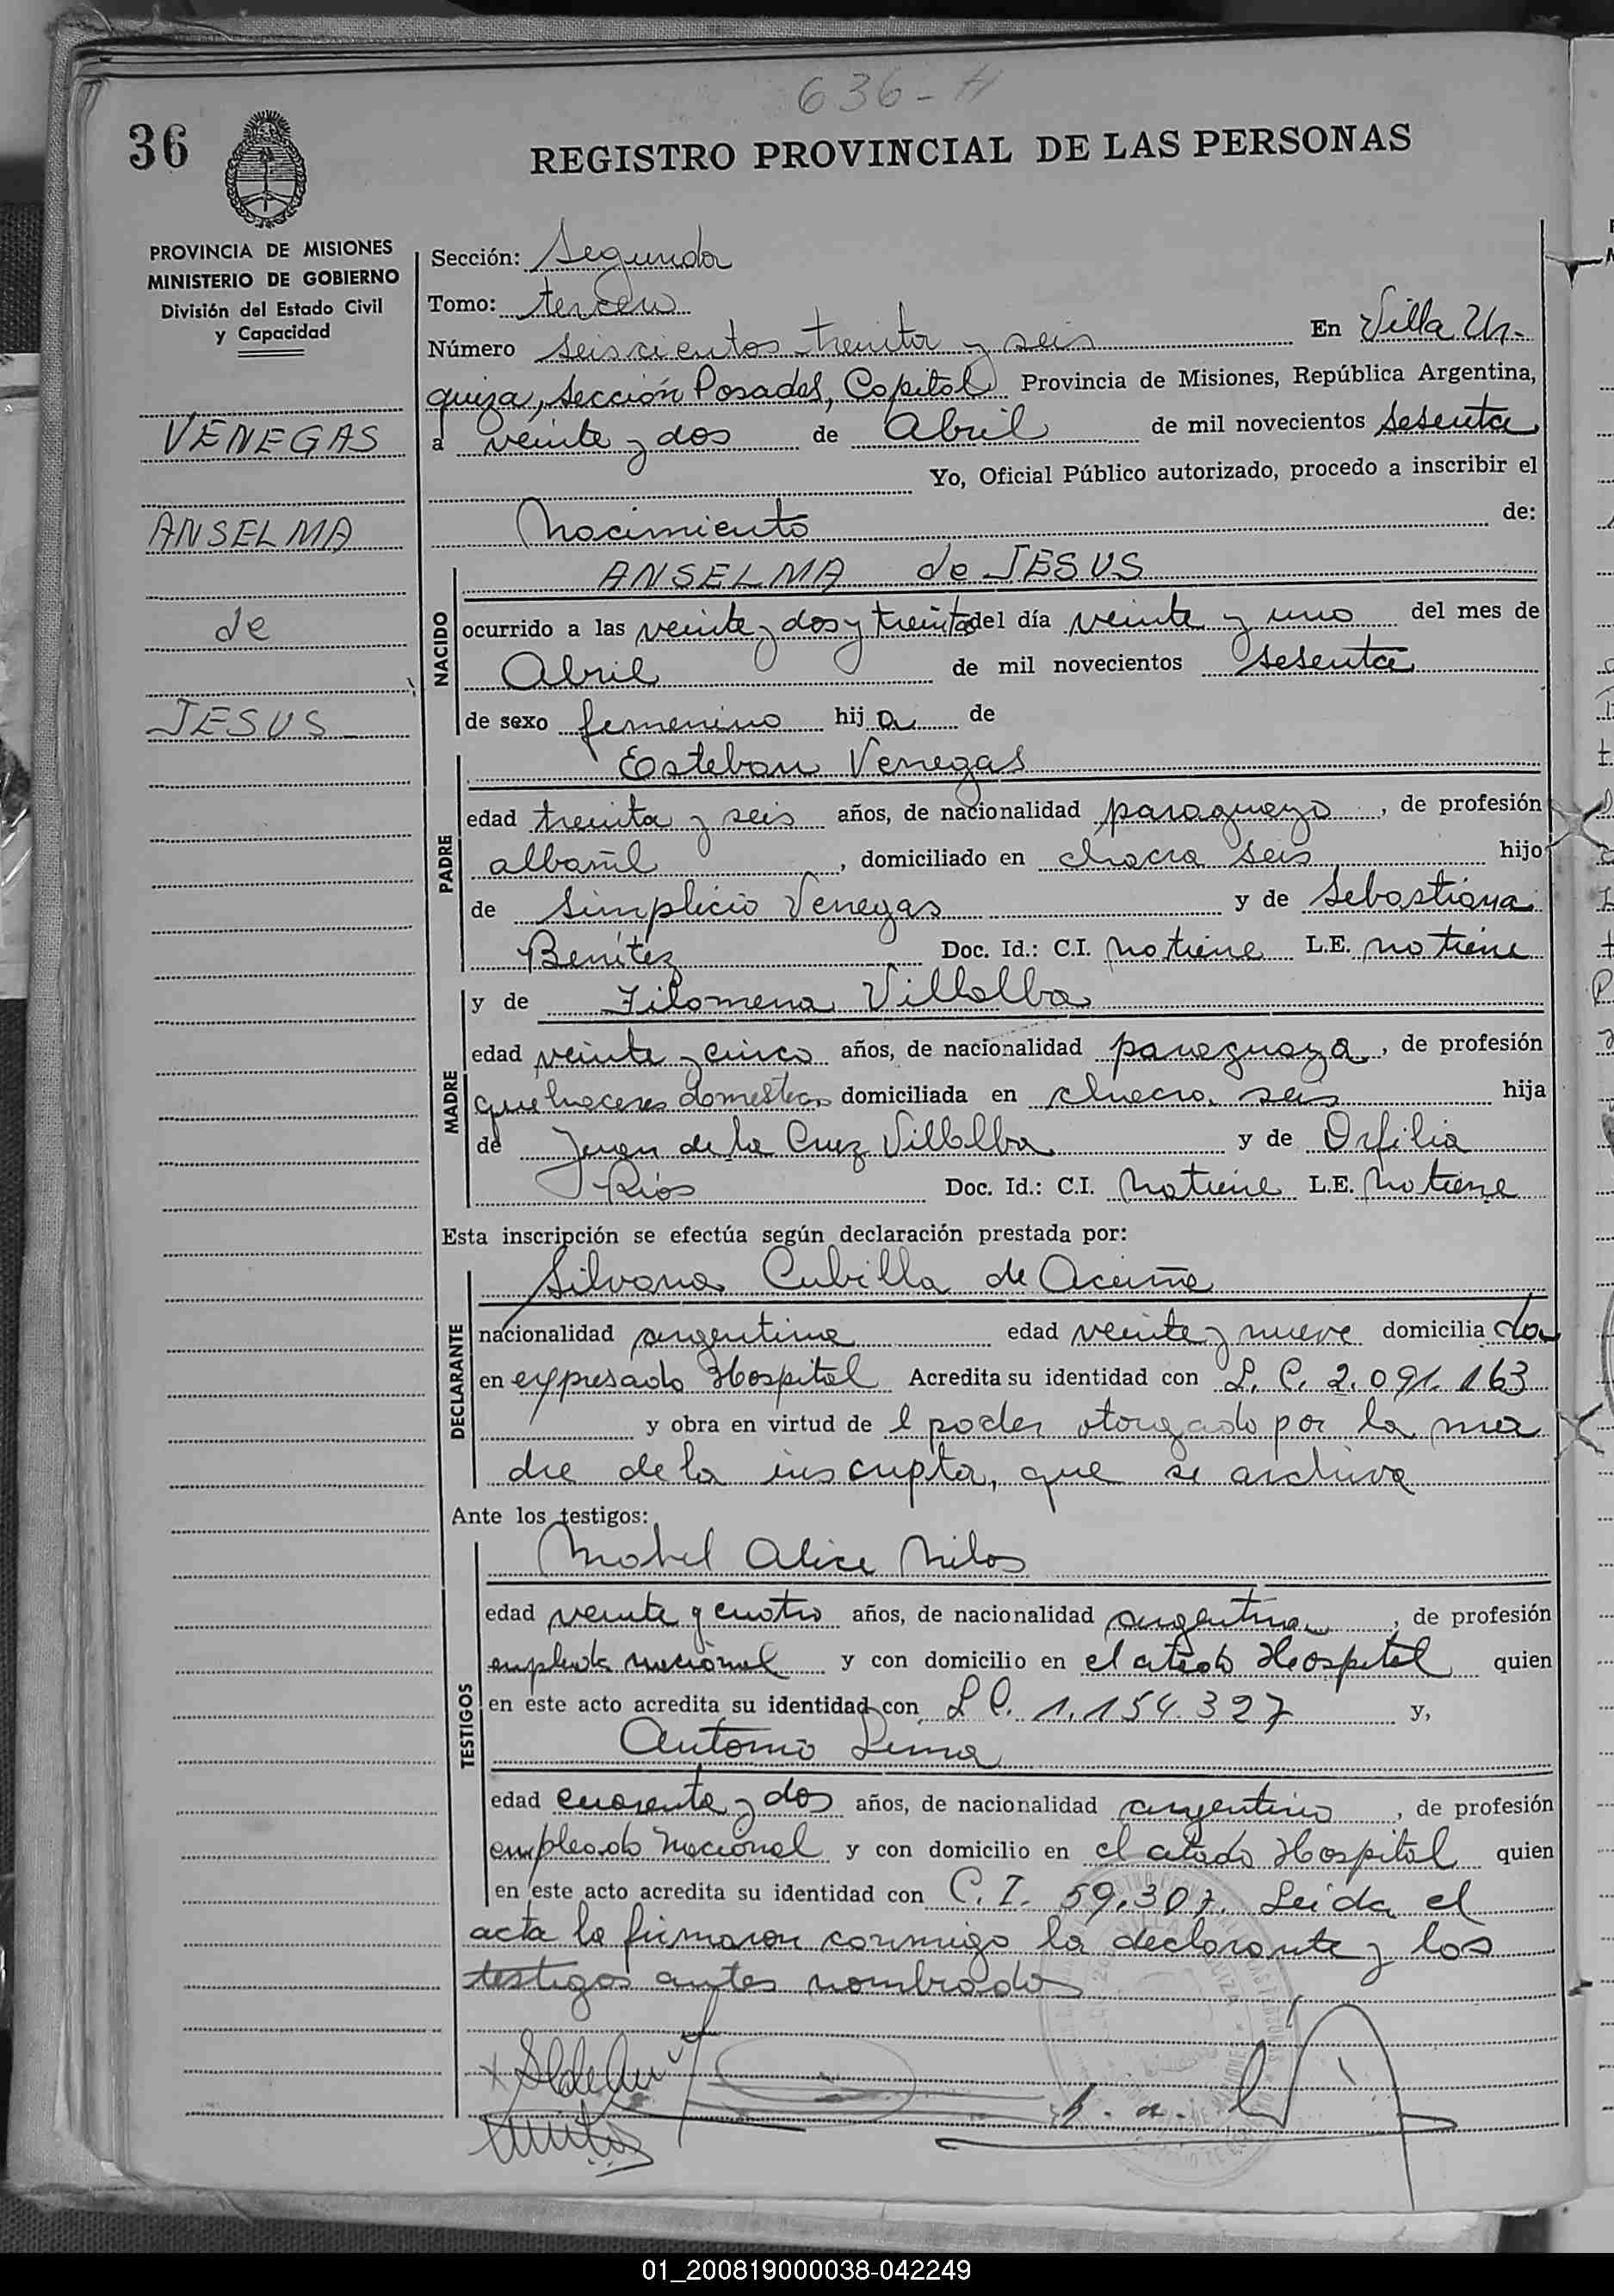 636-H
36
REGISTRO PROVINCIAL DE LAS PERSONAS
PROVINCIA DE MISIONES
MINISTERIO DE GOBIERNO
División del Estado Civil
y Capacidad
VENEGAS
ANSELMA
de
JESUS
Sección: Segunda
Tomo: tercero
Número seiscientos treinta y seis En Villa Ur-
quiza, Sección Posadas, Capital Provincia de Misiones, República Argentina,
a veinte y dos de Abril de mil novecientos sesenta
Yo, Oficial Público autorizado, procedo a inscribir el
Nacimiento de:
NACIDO
ANSELMA de JESUS
ocurrido a las veinte y dos y treinta del día veinte y uno del mes de
Abril de mil novecientos sesenta
de sexo femenino hija de
PADRE
Esteban Venegas
edad treinta y seis años, de nacionalidad paraguayo, de profesión
albañil, domiciliado en chacra seis hijo
de Simplicio Venegas y de Sebastiana
Benítez Doc. Id.: C.I. no tiene L.E. no tiene
MADRE
y de Filomena Villalba
edad veinte y cinco años, de nacionalidad paraguaya, de profesión
quehaceres domésticos domiciliada en chacra seis hija
de Juan de la Cruz Villalba y de Orfilia
Ríos Doc. Id.: C.I. No tiene L.E. No tiene
Esta inscripción se efectúa según declaración prestada por:
DECLARANTE
Silvana Cubilla de Acuña
nacionalidad argentina edad veinte y nueve domiciliada
en expresado Hospital Acredita su identidad con L. C. 2.091.163
y obra en virtud de l poder otorgado por la ma
dre de la inscripta, que se archiva
Ante los testigos:
TESTIGOS
Mabel Alice Milos
edad veinte y cuatro años, de nacionalidad argentina, de profesión
empleada nacional y con domicilio en el citado Hospital quien
en este acto acredita su identidad con L C. 1.154.327 y,
Antonio Lima
edad cuarenta y dos años, de nacionalidad argentino, de profesión
empleado Nacional y con domicilio en el citado Hospital quien
en este acto acredita su identidad con C. I. 59.307. Leida el
acta la firmaron conmigo la declarante y los
testigos antes nombrados
01_200819000038-042249